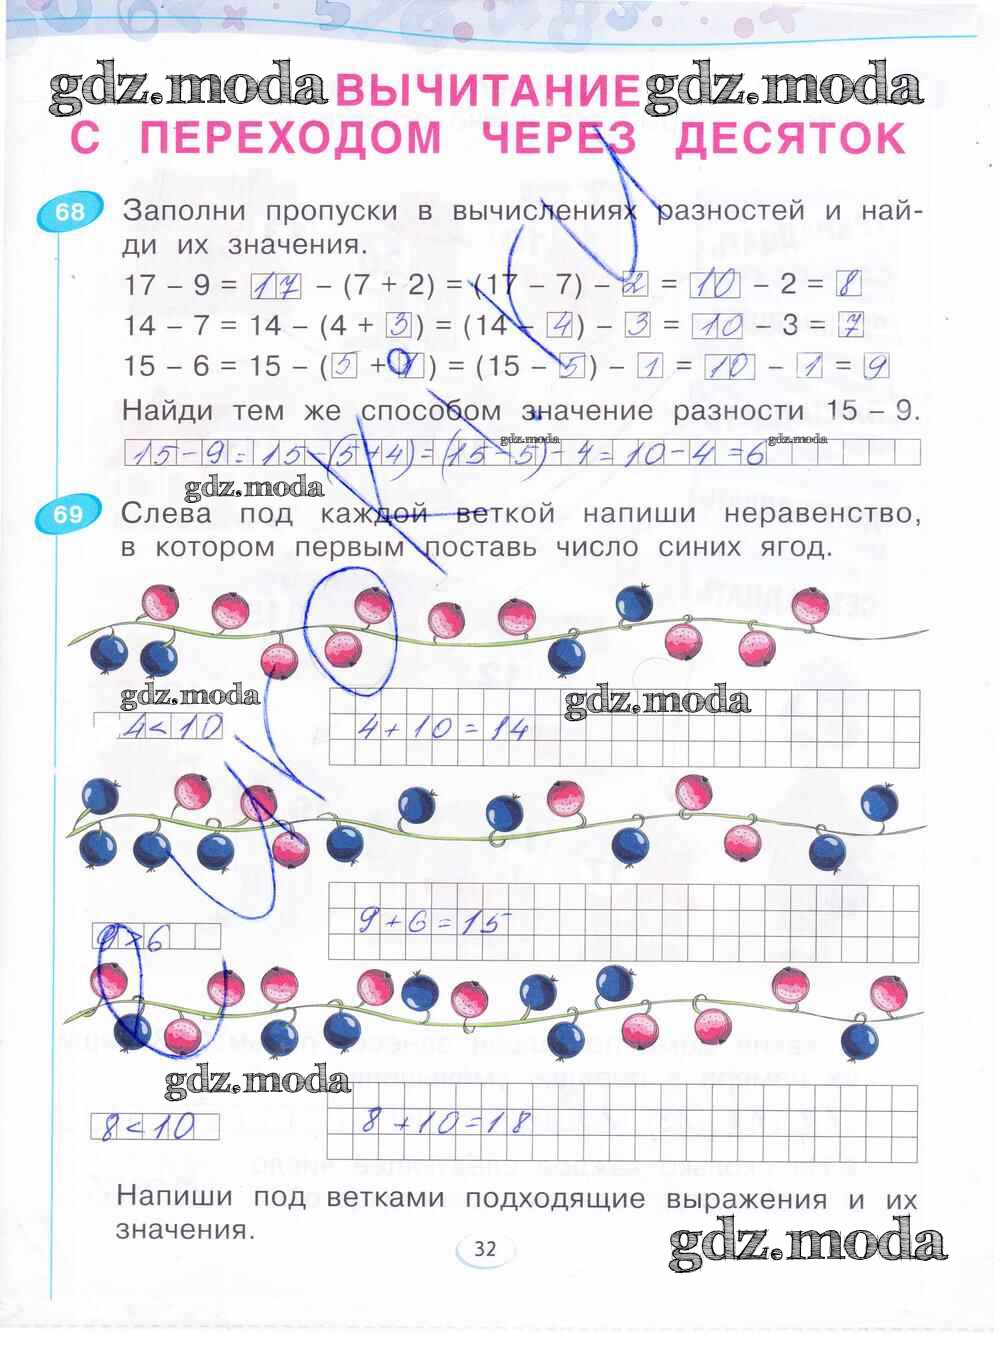 gdz.moda ВЫЧИТАНИЕ gdz.moda
С ПЕРЕХОДОМ ЧЕРЕЗ ДЕСЯТОК
68 Заполни пропуски в вычислениях разностей и най-
ди их значения.
17 – 9 = 17 – (7 + 2) = (17 – 7) – 2 = 10 – 2 = 8
14 – 7 = 14 – (4 + 3) = (14 – 4) – 3 = 10 – 3 = 7
15 – 6 = 15 – (5 + 1) = (15 – 5) – 1 = 10 – 1 = 9
Найди тем же способом значение разности 15 – 9.
gdz.moda gdz.moda
15-9=15-(5+4)=(15-5)-4=10-4=6
gdz.moda
69 Слева под каждой веткой напиши неравенство,
в котором первым поставь число синих ягод.
gdz.moda gdz.moda
4<10 4+10=14
9>6 9+6=15
gdz.moda
8<10 8+10=18
Напиши под ветками подходящие выражения и их
значения.
32
gdz.moda